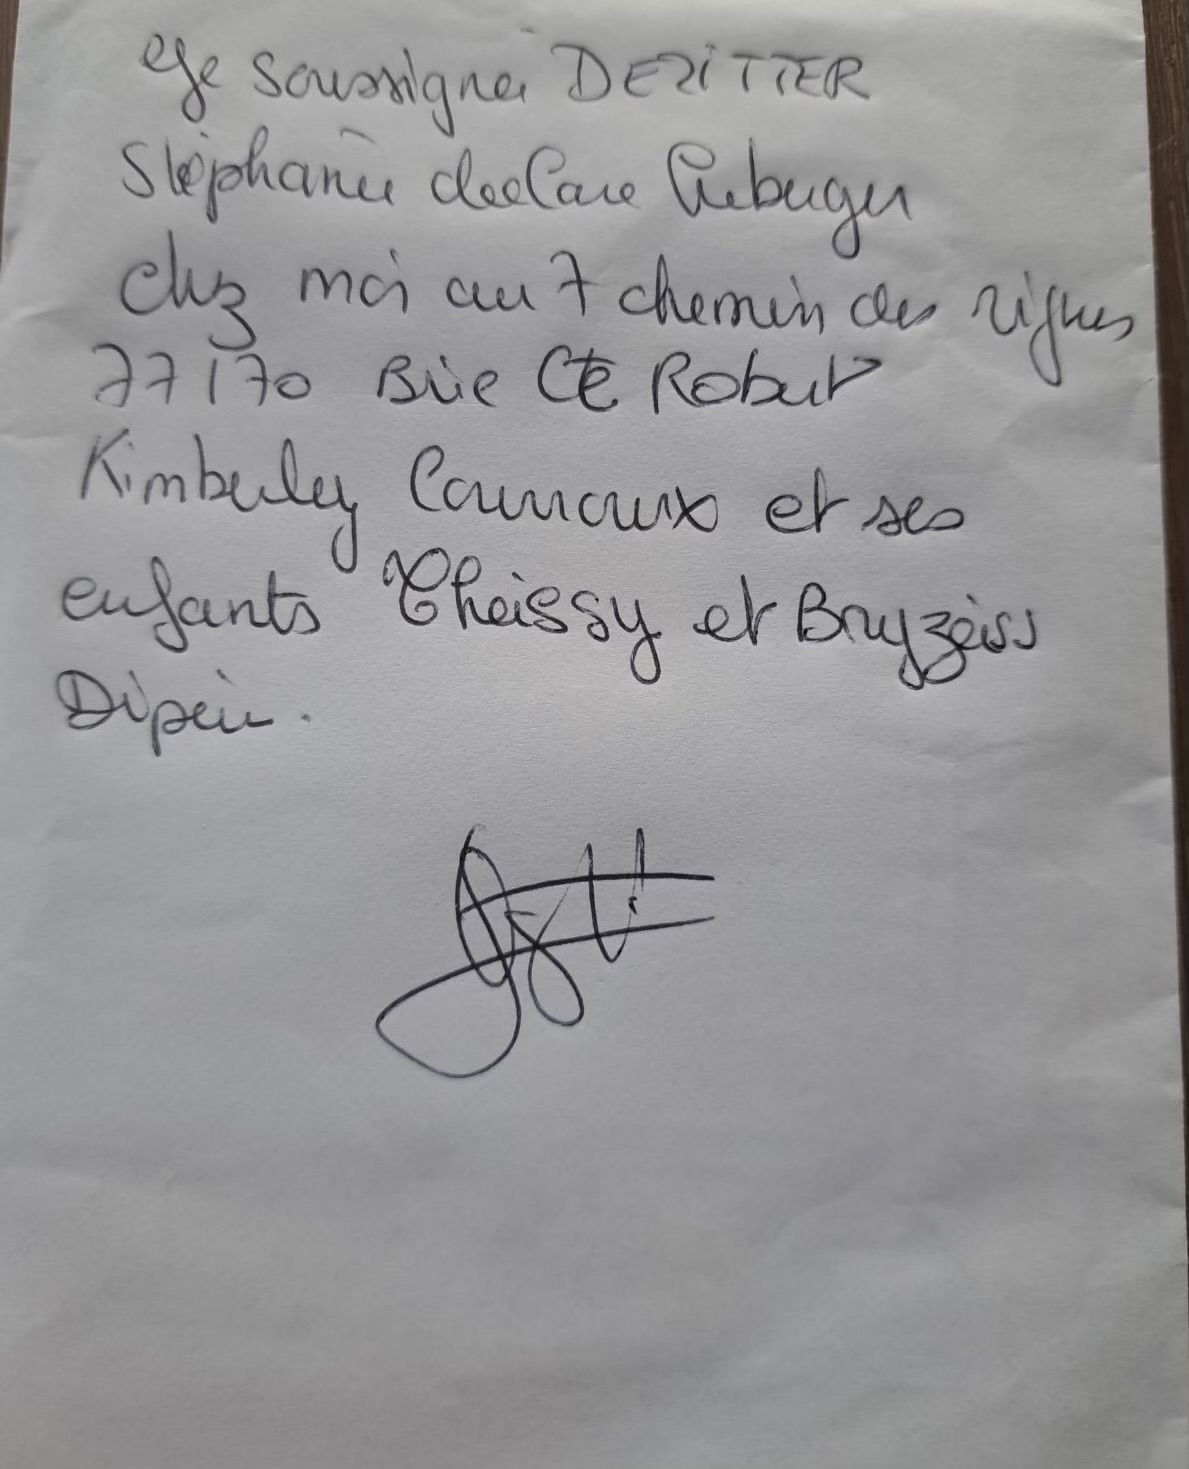 Je soussigné DERITTER
Stéphanie declare heberger
chez moi au 7 chemin des vignes
77170 Brie Cte Robert
Kimberley et ses
enfants Theissy et Bryzeiss